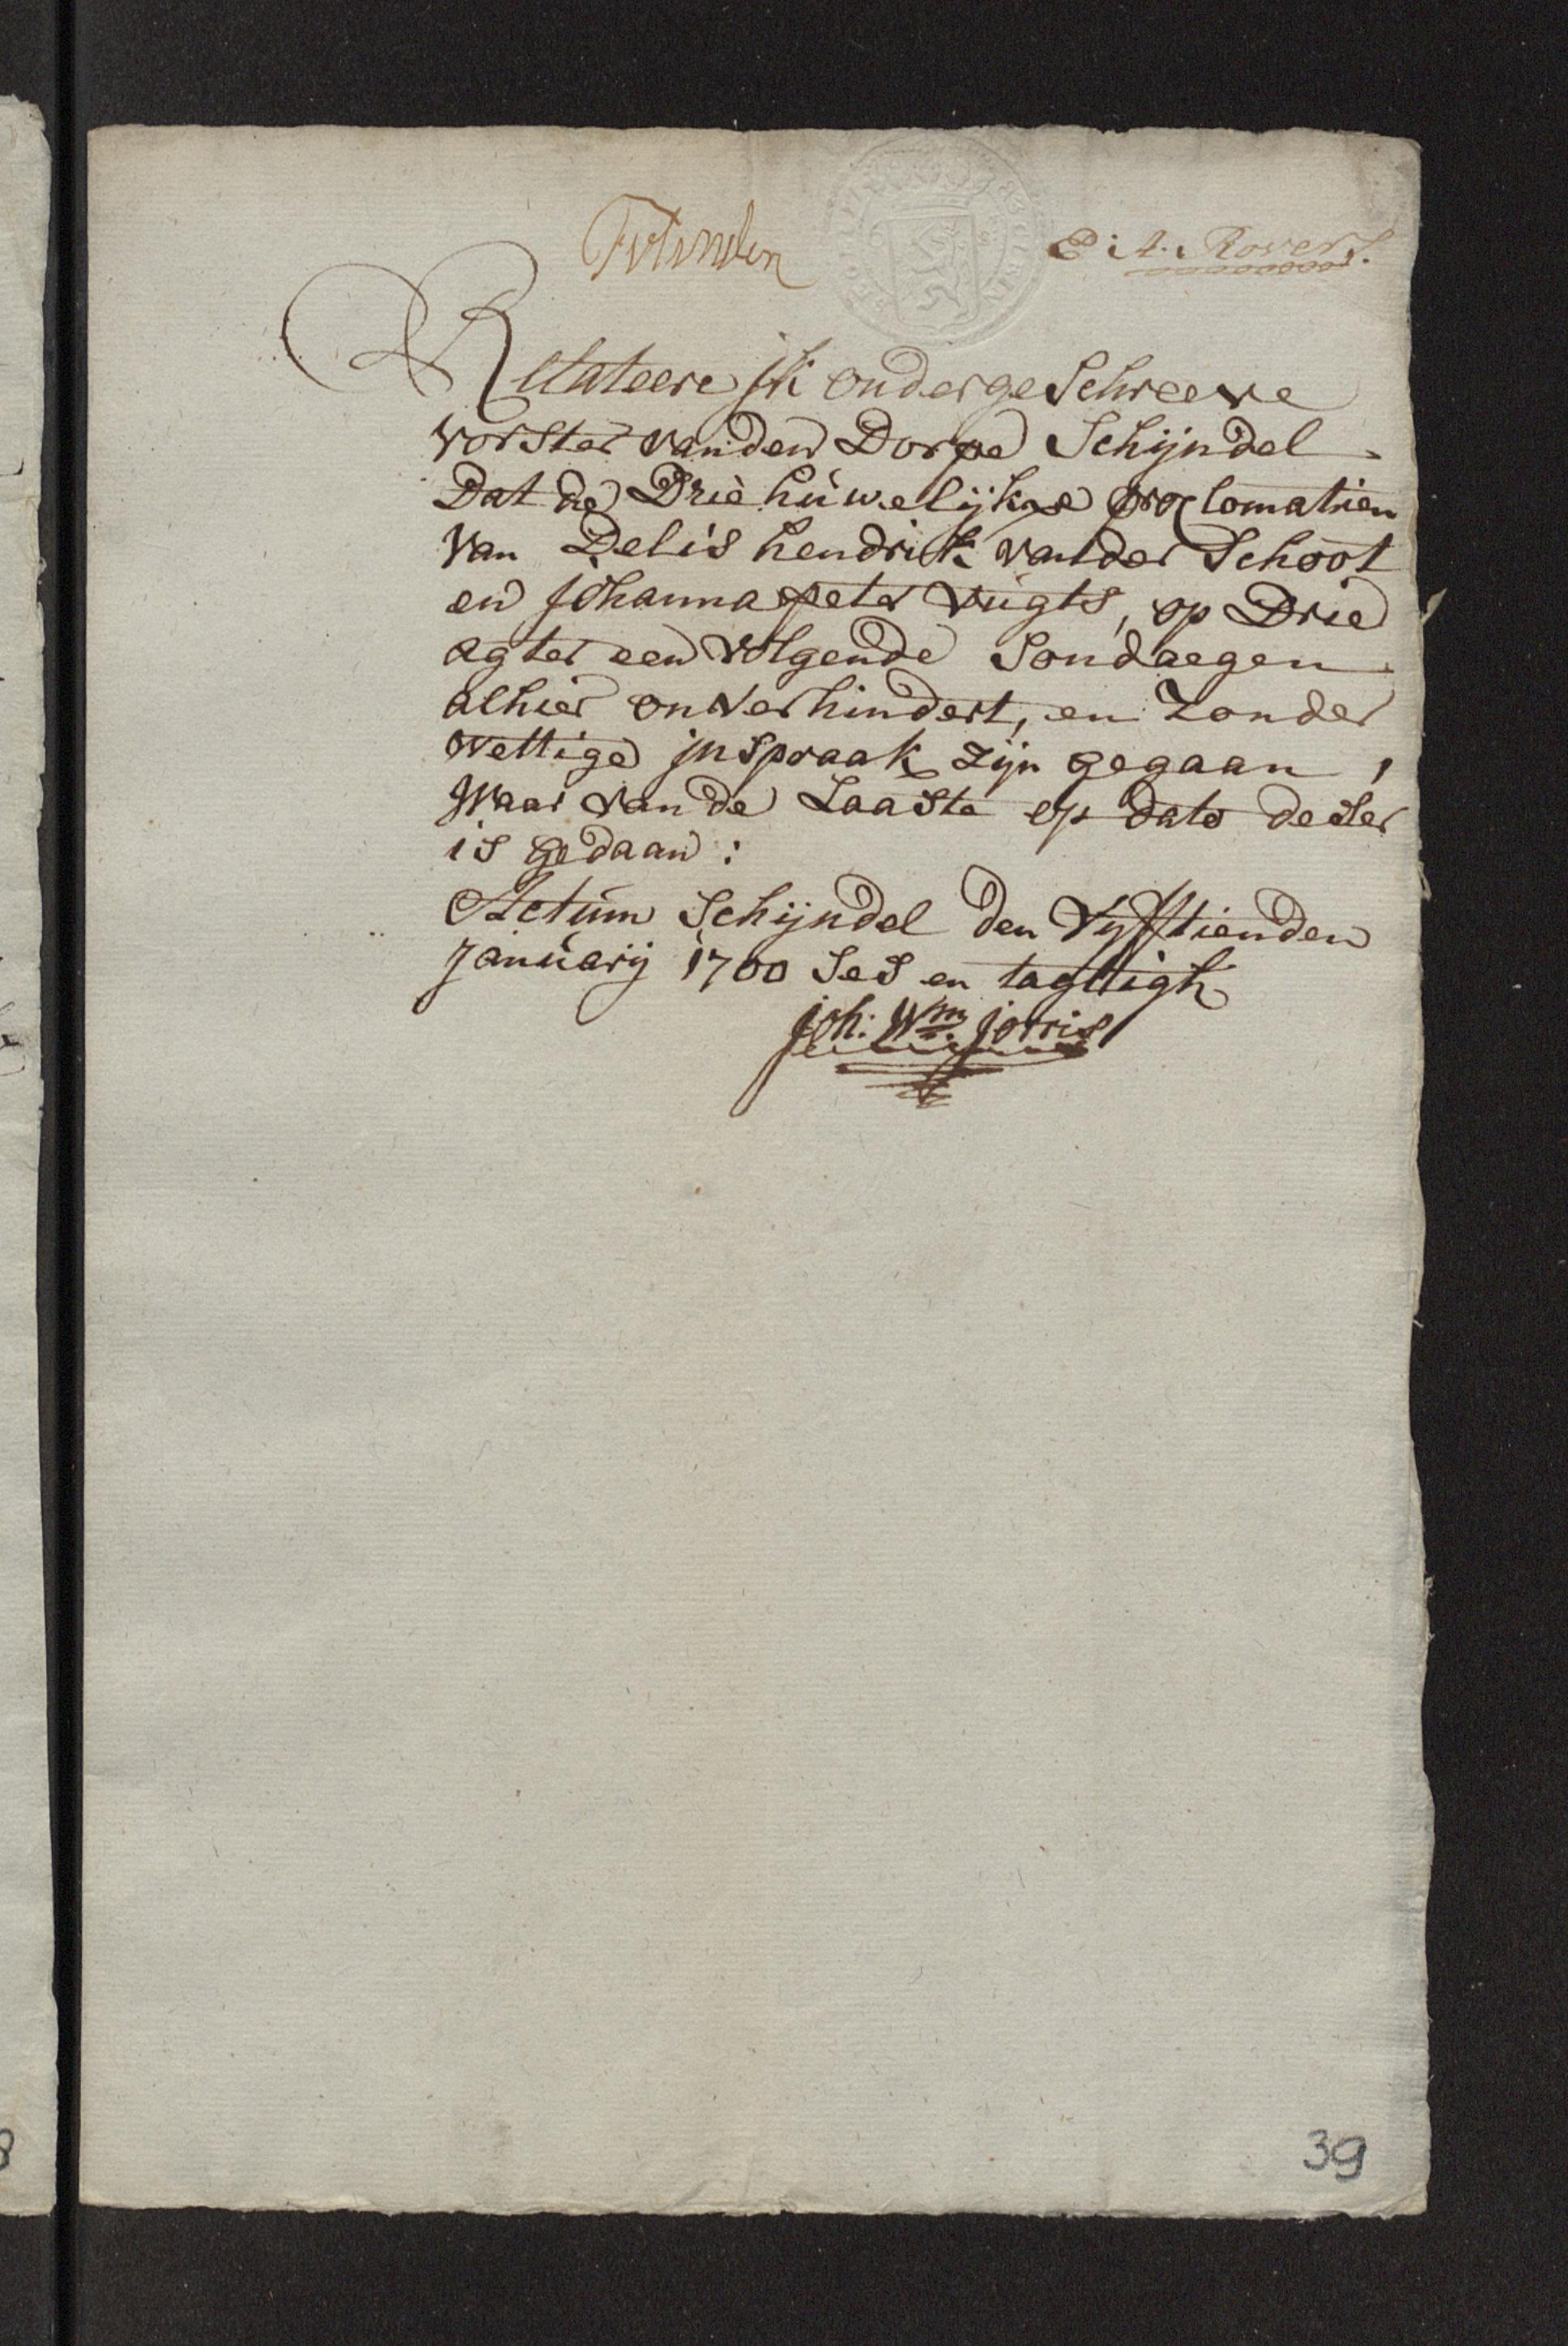 E: A. Rovers.
Relateere jk ondergeschreeve
vorster van den Dorpe Schijndel
Dat de Drie húwelijkse proclomatien
van Delis hendrik vander Schoot
en Johanna peter vúgts, op Drie
agter een volgende Sondaegen
alhier onverhindert, en Zonder
wettige jnspraak zijn gegaan,
Waar van de Laaste op dato deser
is gedaan:
Actúm Schijndel den Vyfftienden
Janúarij 1700 Ses en tagttigh
Joh: Wm. jorris
39